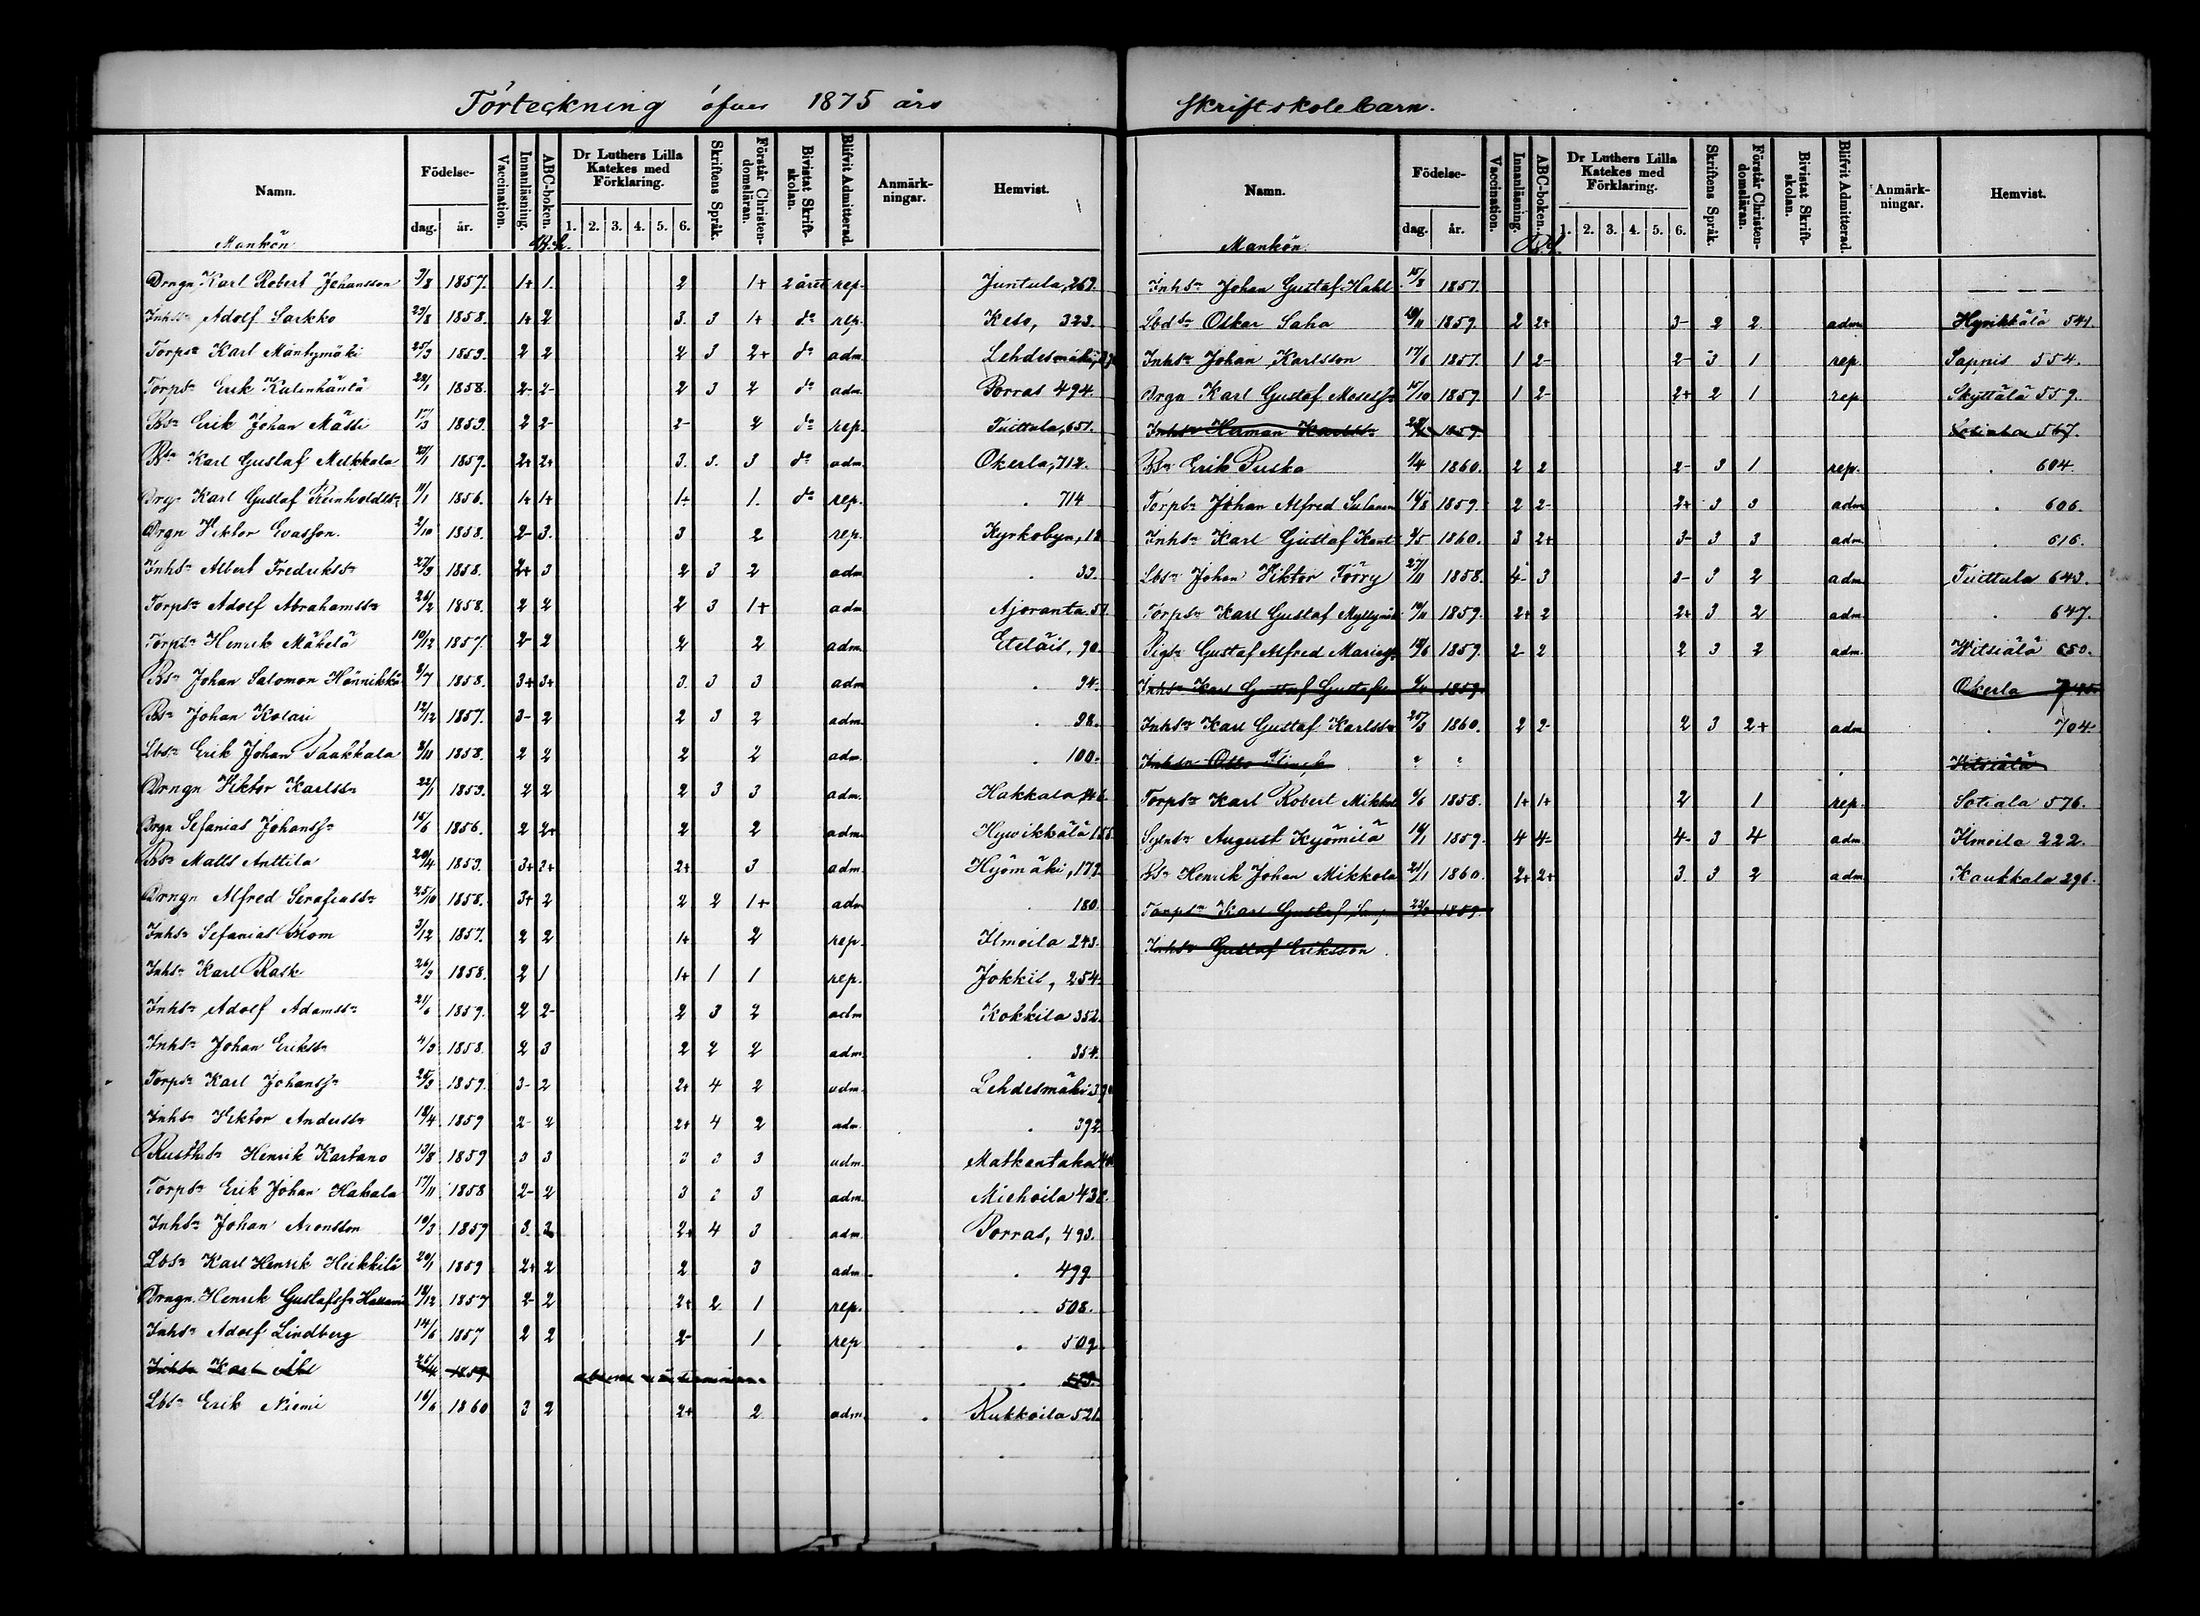 Förteckning öfver 1875 års Skriftskolebarn.
Namn. Födelse- dag. år. Vaccination. Innanläsning. ABC-boken. Dr Luthers Lilla Katekes med Förklaring. 1. 2. 3. 4. 5. 6. Skriftens Språk. Förstår Christendomsläran. Bivistat Skriftskolan. Blifvit Admitterad. Anmärkningar. Hemvist.
Mankön
Drngn Karl Robert Johansson 3/8 1857. 1+ 1. 2 1+ 2 året rep. Juntula, 267.
Inhsn Adolf Sarkko 23/8 1858. 1+ 2 3. 3 1+ do rep. Keso, 323.
Torpsn Karl Mäntymäki 25/3 1859. 2 2 2 3 2+ do adm. Lehdesmäki,
Torpsn Erik Katinhäntä 22/1 1858. 2- 2- 2 3 2 do adm. Porras 494.
Bsn Erik Johan Mässi 17/3 1859. 2 2- 2- 2 do rep. Tuittula, 651.
Bsn Karl Gustaf Melkkala 1859. 2+ 2+ 3. 3. 3 do adm. Okerla, 712.
Drgn Karl Gustaf Reinholdssn 11/1 1856. 1+ 1+ 1+ 1. do rep. . 714
Drgn Viktor Evasson. 2/10 1858. 2- 3. 3 2 rep. Kyrkobyn, 12
Inhsn Albert Fredrikssn 27/9 1858. 2+ 3 2 3 2 adm . 33.
Torpsn Adolf Abrahamssn 26/2 1858. 2 2 2 3 1+ adm Ajoranta 51.
Torpsn Henrik Mäkelä 10/12 1857. 2- 2 2 2 adm. Eteläis, 90.
Bsn Johan Salomon Hännikkä 8/7 1858. 3+ 3+ 3. 3 3 adm . 94.
Bsn Johan Kolari 12/12 1857. 3- 2 2 3 2 adm. . 98.
Lbsn Erik Johan Paakkala 3/11 1858. 2 2 2 2 adm. . 100.
Drngn Viktor Karlssn 22/1 1859. 2 2 2 3 3 adm. Hakkala, 146.
Drgn Sefanias Johanssn 14/6 1856. 2 2+ 2 2 adm. Hyvikkälä 155.
Bsn Matts Anttila 20/4 1859. 3+ 2+ 2+ 3 adm Hyömäki, 179.
Drngn Alfred Serafiassn 25/10 1858. 3+ 2 2 2 1+ adm . 180.
Inhsn Sefanias Blom 3/12 1857. 2 2 1+ 2 rep. Ilmoila 243.
Inhsn Karl Rask 26/3 1858. 2 1 1+ 1 1 rep. Jokkis, 254.
Inhsn Adolf Adamssn 21/6 1859. 2 2- 2 3 2 adm Kokkila 352.
Inhsn Johan Erikssn 4/3 1858. 2 3 2 2 2 adm. . 354.
Torpsn Karl Johanssn 1859. 3- 2 2+ 4 2 adm. Lehdesmäki
Inhsn Viktor Anderssn 18/4 1859 2- 2 2+ 4 2 adm. . 392.
Rusthsn Henrik Kartano 13/8 1859 3 3 3 3 3 adm. Matkantaka
Torpsn Erik Johan Hakala 17/11 1858 2- 2 3 2 3 adm. Miehoila 432.
Inhsn Johan Aronsson 10/3 1859 3. 3. 2+ 4 3 adm. Porras, 493.
Lbsn Karl Henrik Heikkilä 20/1 1859 2+ 2 2 3 adm. . 499
Drngn Henrik Gustafssn 12/12 1857 2- 2 2+ 2 1 rep. . 508.
Inhsn Adolf Lindberg 14/6 1857 2 2 2- 1 rep . 509.
Inhsn Karl Åhl 25/4 1859
Lbsn Erik Niemi 16/6 1860 3 2 2+ 2 adm. . Rukkoila 521.
Namn. Födelse- dag. år. Vaccination. Innanläsning. ABC-boken. Dr Luthers Lilla Katekes med Förklaring. 1. 2. 3. 4. 5. 6. Skriftens Språk. Förstår Christendomsläran. Bivistat Skriftskolan. Blifvit Admitterad. Anmärkningar. Hemvist.
Mankön.
Inhsn Johan Gustaf Hahl 15/8 1857.
Lbdsn Oskar Saha 1859. 2 2+ 3- 2 2. adm Hyvikkälä 541.
Inhsn Johan Karlsson 17/6 1857. 1 2- 2- 3 1 rep. Sapnis 554.
Drgn Karl Gustaf Mosessn 17/10 1859. 1 2- 2+ 2 1 rep Skyttälä 559.
Inhsn Herman Karlssn 1859. Sotiala 567.
Bsn Erik Puska 1/4 1860. 2 2 2- 3 1 rep. . 604.
Torpsn Johan Alfred 1859. 2 2- 2+ 3 3 adm . 606.
Inhsn Karl Gustaf 1860. 3 2+ 3- 3 3 adm. . 616.
Lbsn Johan Viktor Törry 27/11 1858. 4- 3 3- 3 2 adm Tuittula 643.
Torpsn Karl Gustaf 1859. 2+ 2 2+ 3 2 adm. . 647.
Pigsn Gustaf Alfred 1859. 2 2 2 3 2 adm. Witsiälä 650.
Inhsn Karl Gustaf 1859. Okerla
Inhsn Karl Gustaf Karlssn 25/3 1860. 2 2- 2 3 2+ adm . 704.
Inhsn Otto " " Witsiälä
Torpsn Karl Robert 1858. 1+ 1+ 2 1 rep. Sotiala 576.
August Kyömilä 14/1 1859. 4 4- 4- 3 4 adm Ilmoila 222.
Bsn Henrik Johan Mikkola 21/1 1860. 2+ 2+ 3. 3 2 adm. Kaukkala 296.
Torpsn Karl Gustaf 1859.
Inhsn Gustaf Eriksson